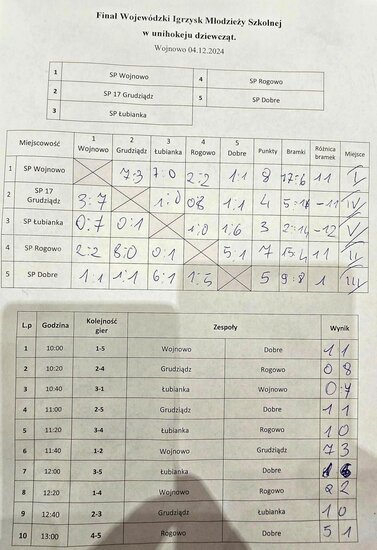 Finał Wojewódzki Igrzysk Młodzieży Szkolnej
w unihokeju dziewcząt.
Wojnowo 04.12.2024
1 SP Wojnowo 4 SP Rogowo
2 SP 17 Grudziądz 5 SP Dobre
3 SP Łubianka
Miejscowość 1 Wojnowo 2 Grudziądz 3 Łubianka 4 Rogowo 5 Dobre Punkty Bramki Różnica bramek Miejsce
1 SP Wojnowo 7:3 7:0 2:2 1:1 8 17:6 11 I
2 SP 17 Grudziądz 3:7 1:0 0:8 1:1 4 5:16 -11 IV
3 SP Łubianka 0:7 0:1 1:0 1:6 3 2:14 -12 V
4 SP Rogowo 2:2 8:0 0:1 5:1 7 15:4 11 II
5 SP Dobre 1:1 1:1 6:1 1:5 5 9:8 1 III
L.p Godzina Kolejność gier Zespoły Wynik
1 10:00 1-5 Wojnowo Dobre 1 1
2 10:20 2-4 Grudziądz Rogowo 0 8
3 10:40 3-1 Łubianka Wojnowo 0:7
4 11:00 2-5 Grudziądz Dobre 1 1
5 11:20 3-4 Łubianka Rogowo 1 0
6 11:40 1-2 Wojnowo Grudziądz 7 3
7 12:00 3-5 Łubianka Dobre 1 6
8 12:20 1-4 Wojnowo Rogowo 2 2
9 12:40 2-3 Grudziądz Łubianka 1 0
10 13:00 4-5 Rogowo Dobre 5 1